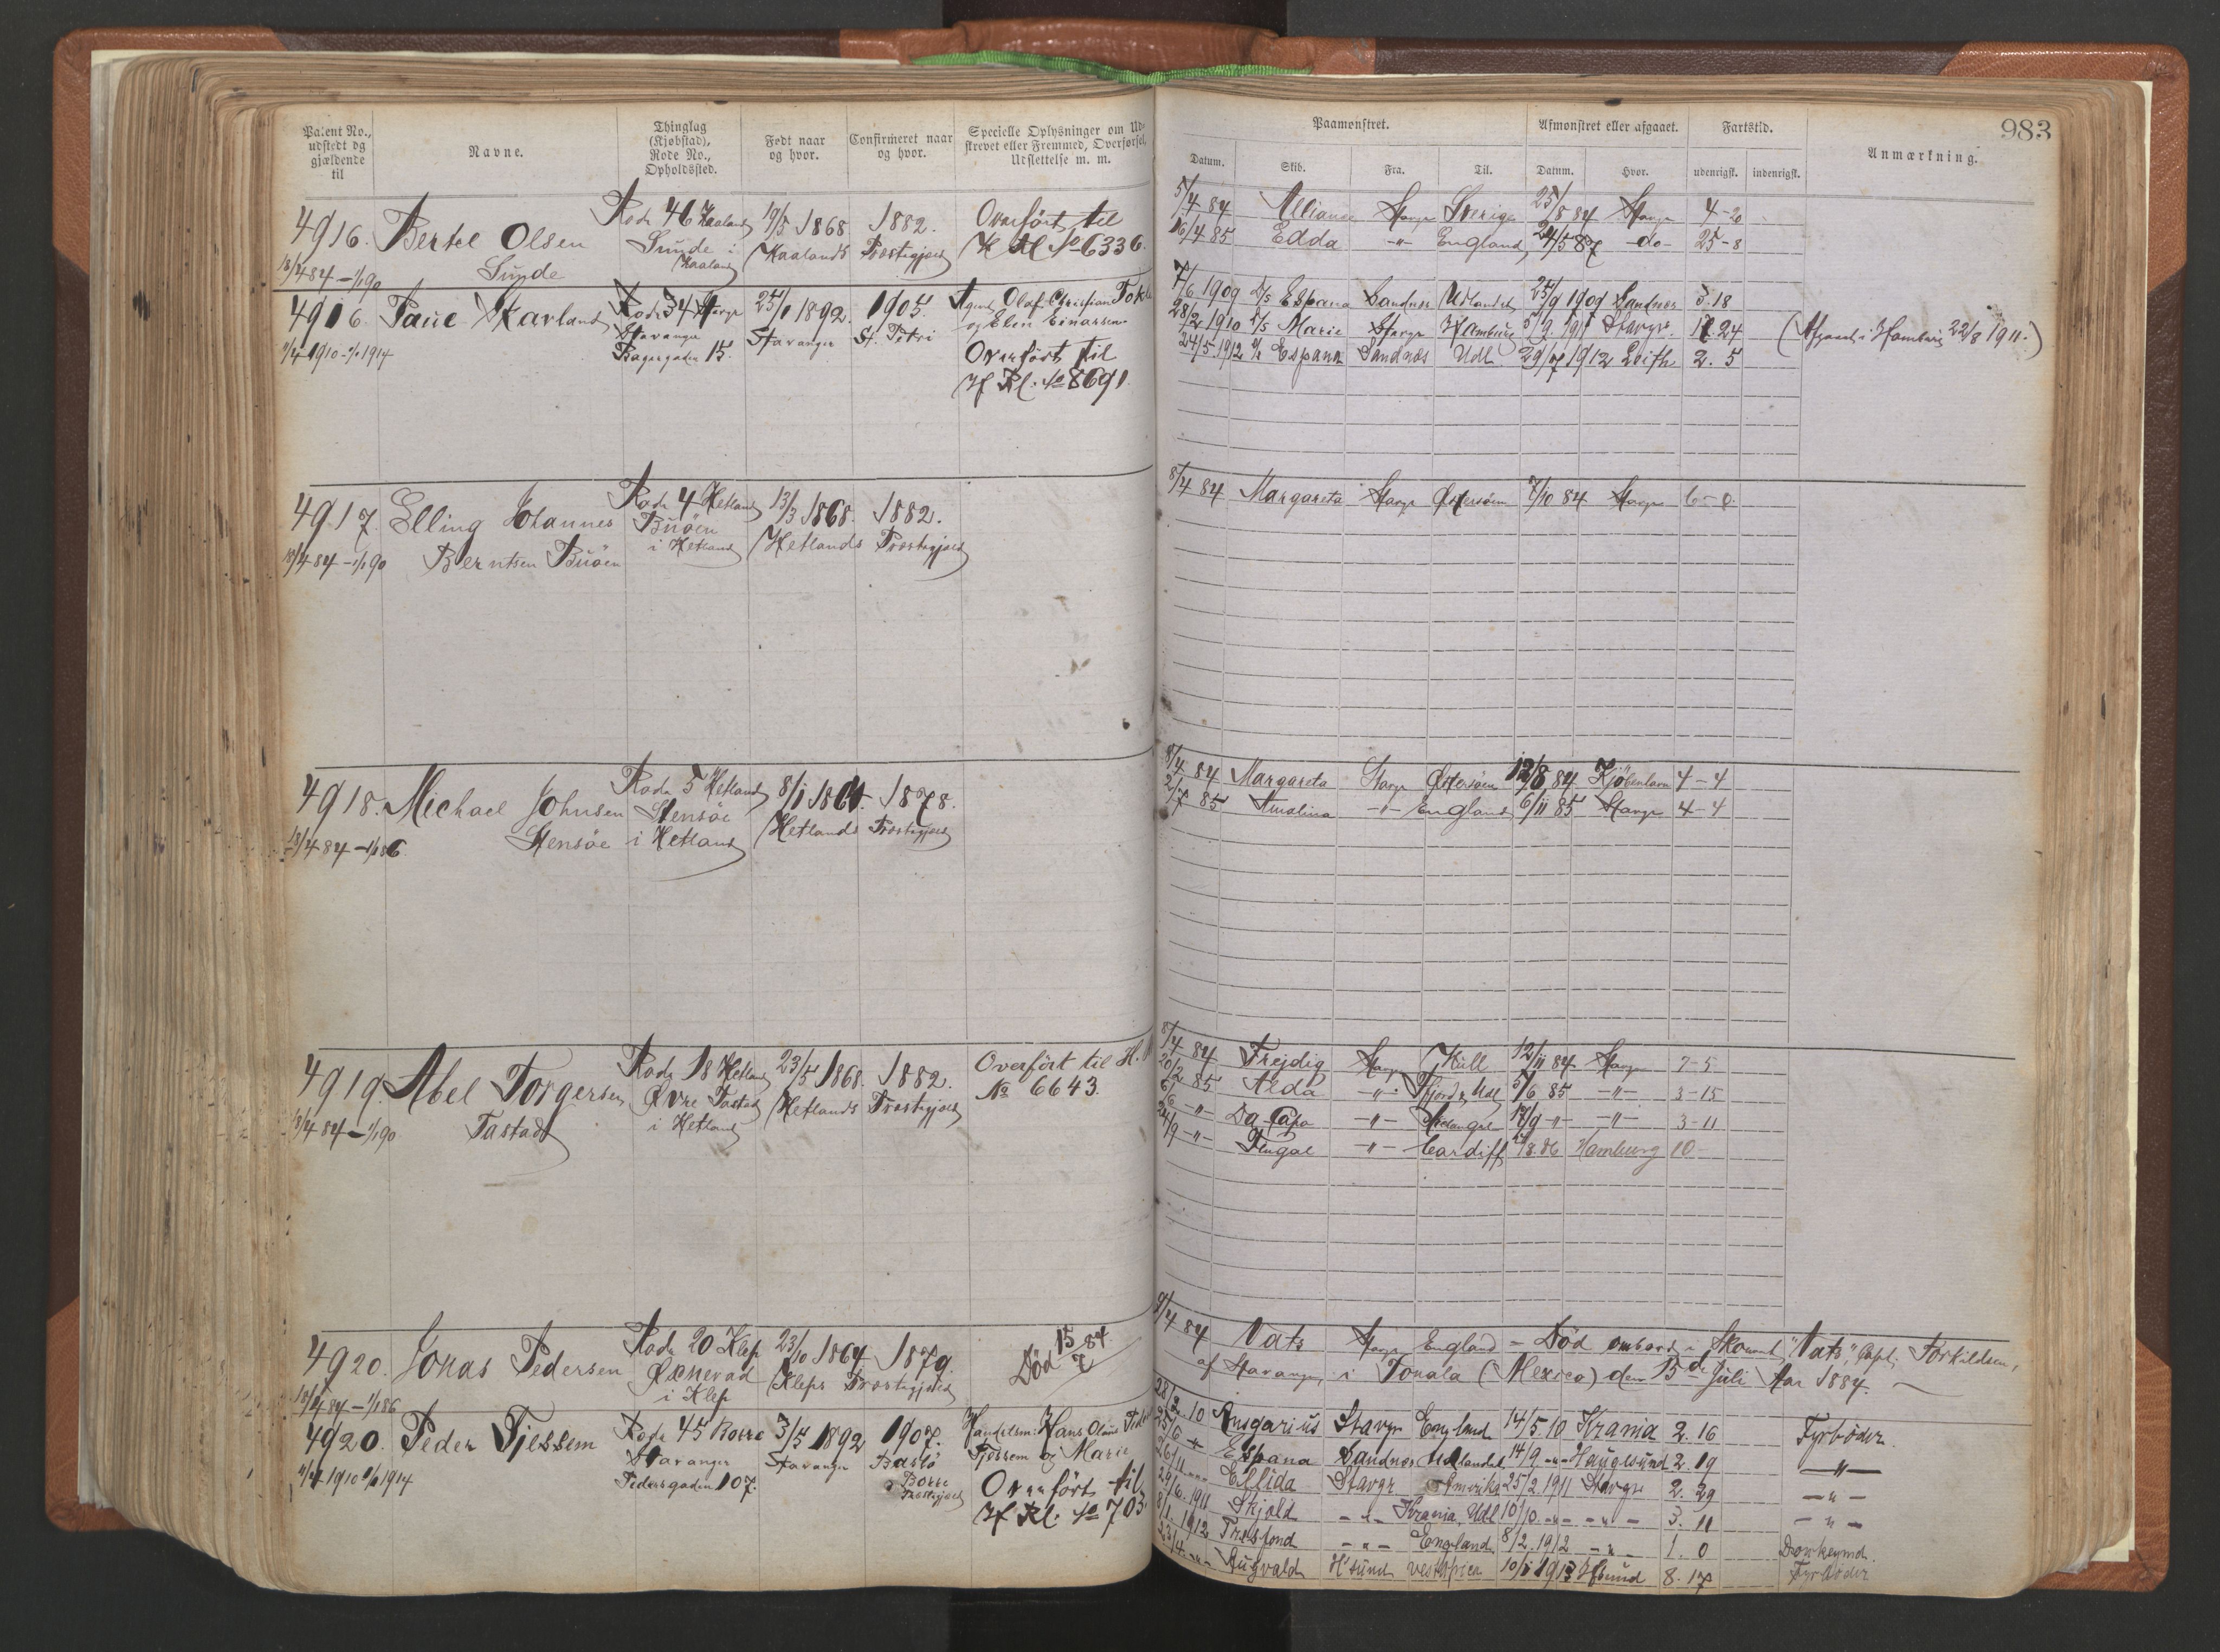 983
Patent No., udstedt og gjældende til
Navne.
Thinglag (Kjøbstad), Rode No., Opholdssted.
Født naar og hvor.
Confirmeret naar og hvor.
Specielle Oplysninger om Udskrevet eller Fremmed, Overførsel, Udslettelse m. m.
Paamønstret.
Afmønstret eller afgaaet.
Fartstid.
Anmærkning.
Datum.
Skib.
Fra.
Til.
Datum.
Hvor.
udenrigsk.
indenrigsk.
4916. Bertel Olsen Rode 46 Haaland 19/5 1868. 1882. Overført til
Sunde Sunde i Haaland Haalands Præstegjæld H. Rl. No 6336.
18/4 84 - 1/1 90
5/4 84 Alliance Stavgr Sverige 25/8 84 Stavgr 4-20
16/4 85 Edda -"- England 24/5 87 -do- 25-8
4916. Rode 34 Stavgr 25/1 1892. 1905. Agent Olaf Christian
Stavanger Stavanger St. Petri og Elen Einarsen
1/4 1910 - 1/1 1914 15. Overført til
H Rl. No 8691.
7/6 1909 D/S Espana Sandnes Udlandet 25/9 1909 Sandnes 3.18
28/2 1910 D/S Marie Stavgr Hamburg Stavgr. 17.24 (Afgaaet i Hamburg 22/8 1911.)
24/5 1912 Espana Sandnæs Udl. 29/7 1912 Leith 2. 5
4917. Elling Johannes Rode 4 Hetland 13/3 1868. 1882.
Berntsen Buøen Buøen i Hetland Hetlands Præstegjæld
18/4 84 - 1/1 90
8/4 84 Margareta Stavgr Østersøen 7/10 84 Stavgr 6-0
4918. Michael Johnsen Rode 5 Hetland 8/1 1864. 1878.
Stensøe Stensøe i Hetland Hetlands Præstegjæld
18/4 84 - 1/1 86
8/4 84 Margareta Stavgr Østersøen 12/8 84 Kjøbenhavn 4-4
2/7 85 Amalina -"- England 6/11 85 Stavgr 4-4
4919. Abel Torgersen Rode 18 Hetland 23/5 1868. 1882. Overført til H.
Tastad Øvre Tastad i Hetland Hetlands Præstegjæld No 6643.
18/4 84 - 1/1 90
8/4 84 Frejdig Stavgr Hull 12/11 84 Stavgr 7-5
20/2 85 Alda -"- 5/6 85 -"- 3-15
6/6 -"- Da Capo -"- 17/9 -"- -"- 3-11
24/9 -"- Fingal -"- Cardiff 86 Hamburg 10-
4920. Jonas Pedersen Rode 20 Klep 23/10 1864 1879. Død 15/7 84
i Klep Kleps Præstegjæld
18/4 84 - 1/1 86
9/4 84 Vats Stavgr England - Død ombord i Skonnert "Vats", Capt. Torkildsen,
af Stavanger, i Tonala (Mexico) den 15de Juli Aar 1884.
4920. Peder Tjessem Rode 45 Borre 3/5 1892 1907. Handelsm: Hans Olaus
Stavanger Stavanger Tjessem og Marie
1/4 1910 1/1 1914 Pedersgaden 107. Borre Præstegjæld Overført til
H Rl. No 703
28/2 10 Ansgarius Stavgr England 14/5 10 Krania 2.16 Fyrbøder.
25/6 Espana Sandnes Udlandet 14/9 -"- Haugesund 2.19 -"-
26/11 -"- Ellida Stavgr Amerika 25/2 1911 Stavgr 2. 29 -"-
29/6 1911 Skjold -"- Krania, Udl 10/10 -"- -"- 3. 11 -"-
8/1 1912 Tresfond -"- England 8/2 1912 -"- 1. 0 Donkeymd.
23/4 -"- H'sund Vestafrica 10/1 1913 H'sund 8. 17 Fyrbøder